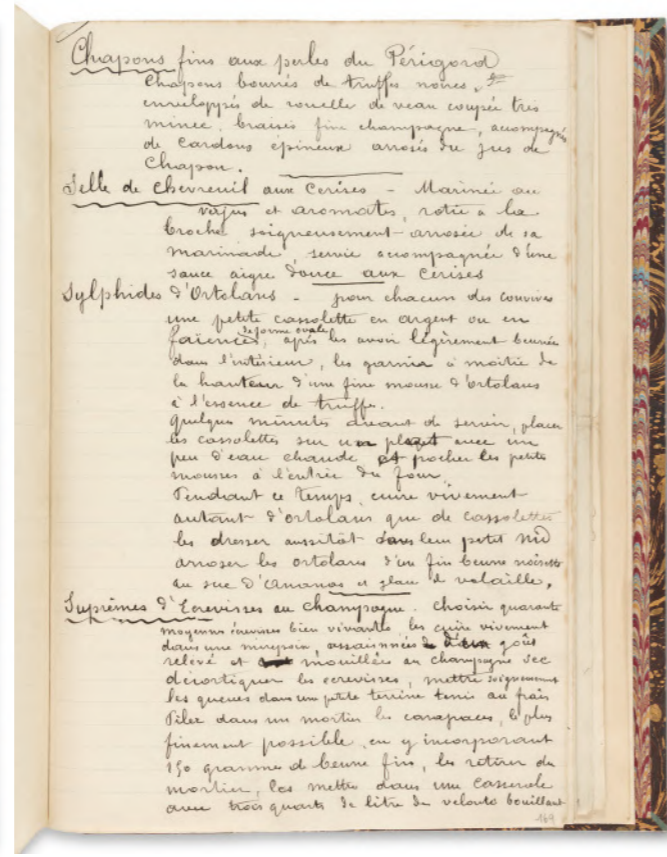 Chapons fins aux perles du Périgord
Chapons bourrés de truffes noires, et
enveloppés de rouelle de veau coupée très
mince, braisés fine champagne, accompagnés
de Cardons épineux arrosés du jus de
Chapon.
Selle de Chevreuil aux Cerises - Marinée au
verjus et aromates, rotie à la
broche soigneusement arrosée de sa
marinade, servie accompagnée d'une
sauce aigre douce aux cerises
Sylphides d'Ortolans - pour chacun des convives
une petite cassolette en argent ou en
faïence, de forme ovale, après les avoir légèrement beurrée
dans l'intérieur, les garnir à moitié de
la hauteur d'une fine mousse d'ortolans
à l'essence de truffe.
Quelques minutes avant de servir, placer
les cassolettes sur un avec un
peu d'eau chaude et pocher les petits
mousses à l'entrée du four.
Pendant ce temps, cuire vivement
autant d'ortolans que de cassolettes
les dresser aussitôt dans leur petit nid
arroser les ortolans d'un fin beurre noisette
au suc d'Ananas et glace de volaille.
Suprêmes d'Ecrevisses au Champagne. Choisir quarante
moyennes écrevisses bien vivantes, les cuire vivement
dans une mirepoix, assaisonnées goût
relevé et mouillées au champagne sec
décortiquer les ecrevisses, mettre soigneusement
les queues dans une petite terrine tenir au frais
Piler dans un mortier les carapaces, le plus
finement possible, en y incorporant
150 grammes de beurre fin, les retirer du
mortier, les mettre dans une Casserole
avec trois quarts de litre de velouté bouillant
169